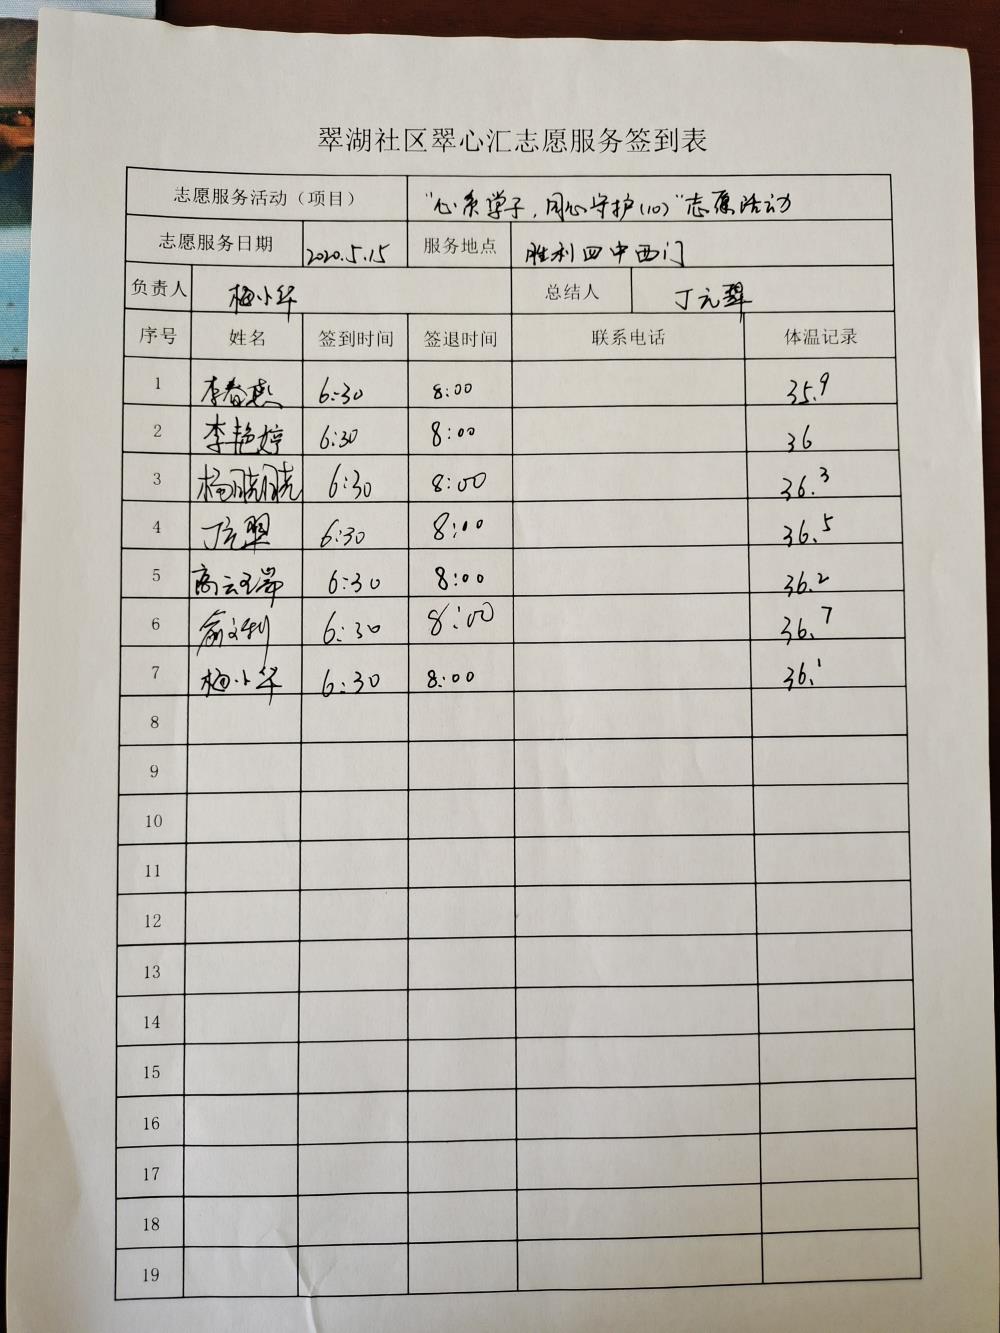 翠湖社区翠心汇志愿服务签到表
志愿服务活动（项目） “心系学子，同心守护(10)”志愿活动
志愿服务日期 2020.5.15 服务地点 胜利四中西门
负责人 梅小华 总结人 丁元翠
序号 姓名 签到时间 签退时间 联系电话 体温记录
1 李春燕 6:30 8:00 35.9
2 李艳婷 6:30 8:00 36
3 杨晓晓 6:30 8:00 36.3
4 丁元翠 6:30 8:00 36.5
5 6:30 8:00 36.2
6 俞文利 6:30 8:00 36.7
7 梅小华 6:30 8:00 36.1
8
9
10
11
12
13
14
15
16
17
18
19